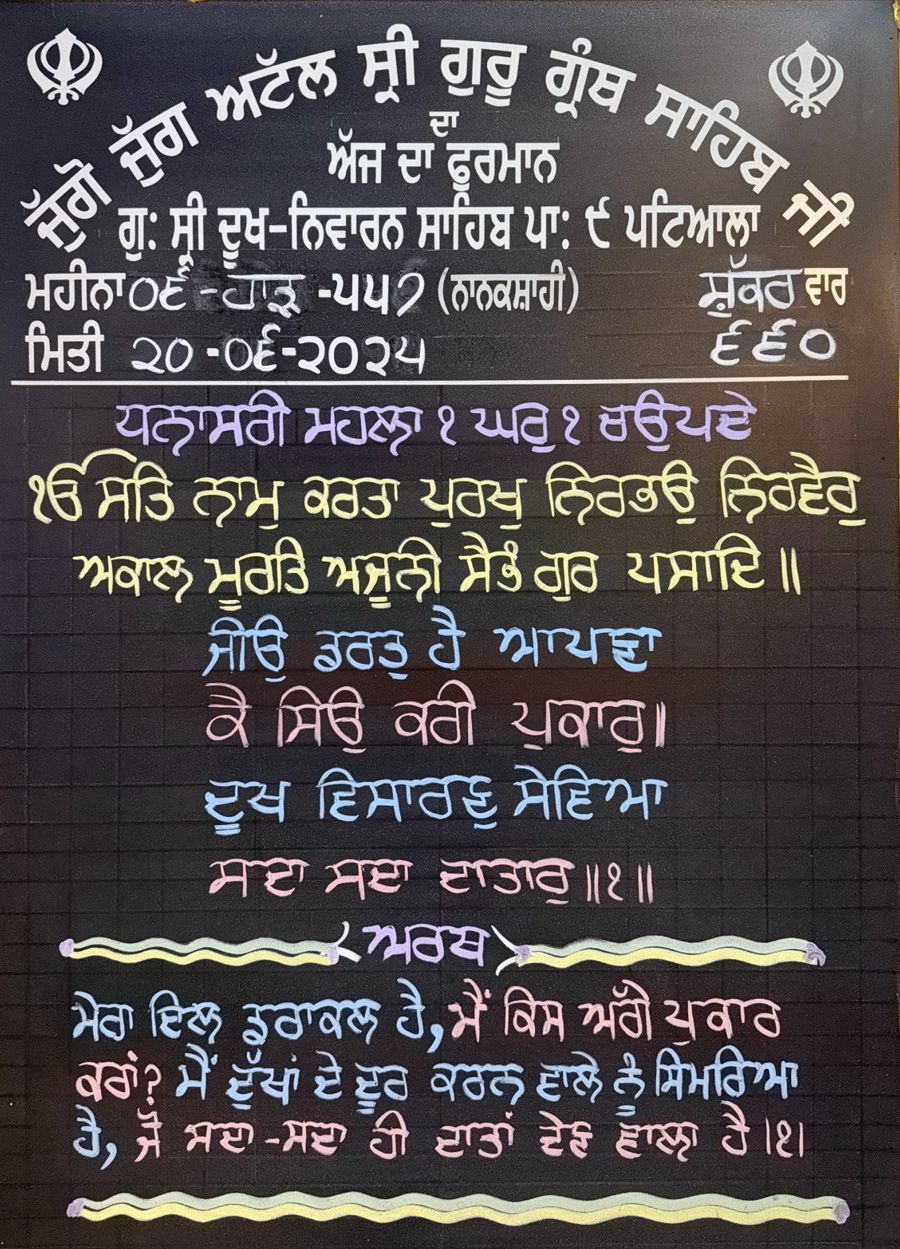 ਜੁੱਗੋ ਜੁੱਗ ਅਟੱਲ ਸ੍ਰੀ ਗੁਰੂ ਗ੍ਰੰਥ ਸਾਹਿਬ ਜੀ
ਦਾ
ਅੱਜ ਦਾ ਫੂਰਮਾਨ
ਗੁ: ਸ੍ਰੀ ਦੂਖ-ਨਿਵਾਰਨ ਸਾਹਿਬ ਪਾ: ੯ ਪਟਿਆਲਾ
ਮਹੀਨਾ ੦੬-ਹਾੜ -੫੫੭ (ਨਾਨਕਸ਼ਾਹੀ) ਸ਼ੁੱਕਰ ਵਾਰ
ਮਿਤੀ ੨੦-੦੬-੨੦੨੫ ੬੬੦
ਧਨਾਸਰੀ ਮਹਲਾ ੧ ਘਰੁ ੧ ਚਉਪਦੇ
ੴ ਸਤਿ ਨਾਮੁ ਕਰਤਾ ਪੁਰਖੁ ਨਿਰਭਉ ਨਿਰਵੈਰੁ
ਅਕਾਲ ਮੂਰਤਿ ਅਜੂਨੀ ਸੈਭੰ ਗੁਰ ਪਸਾਦਿ ॥
ਜੀਉ ਡਰਤੁ ਹੈ ਆਪਣਾ
ਕੈ ਸਿਉ ਕਰੀ ਪੁਕਾਰ॥
ਦੂਖ ਵਿਸਾਰਣੁ ਸੇਵਿਆ
ਸਦਾ ਸਦਾ ਦਾਤਾਰੁ ॥੧॥
ਅਰਥ
ਮੇਰਾ ਦਿਲ ਡਰਾਕਲ ਹੈ, ਮੈਂ ਕਿਸ ਅੱਗੇ ਪੁਕਾਰ
ਕਰਾਂ? ਮੈਂ ਦੁੱਖਾਂ ਦੇ ਦੂਰ ਕਰਨ ਵਾਲੇ ਨੂੰ ਸਿਮਰਿਆ
ਹੈ, ਜੋ ਸਦਾ-ਸਦਾ ਹੀ ਦਾਤਾਂ ਦੇਣ ਵਾਲਾ ਹੈ।੧।